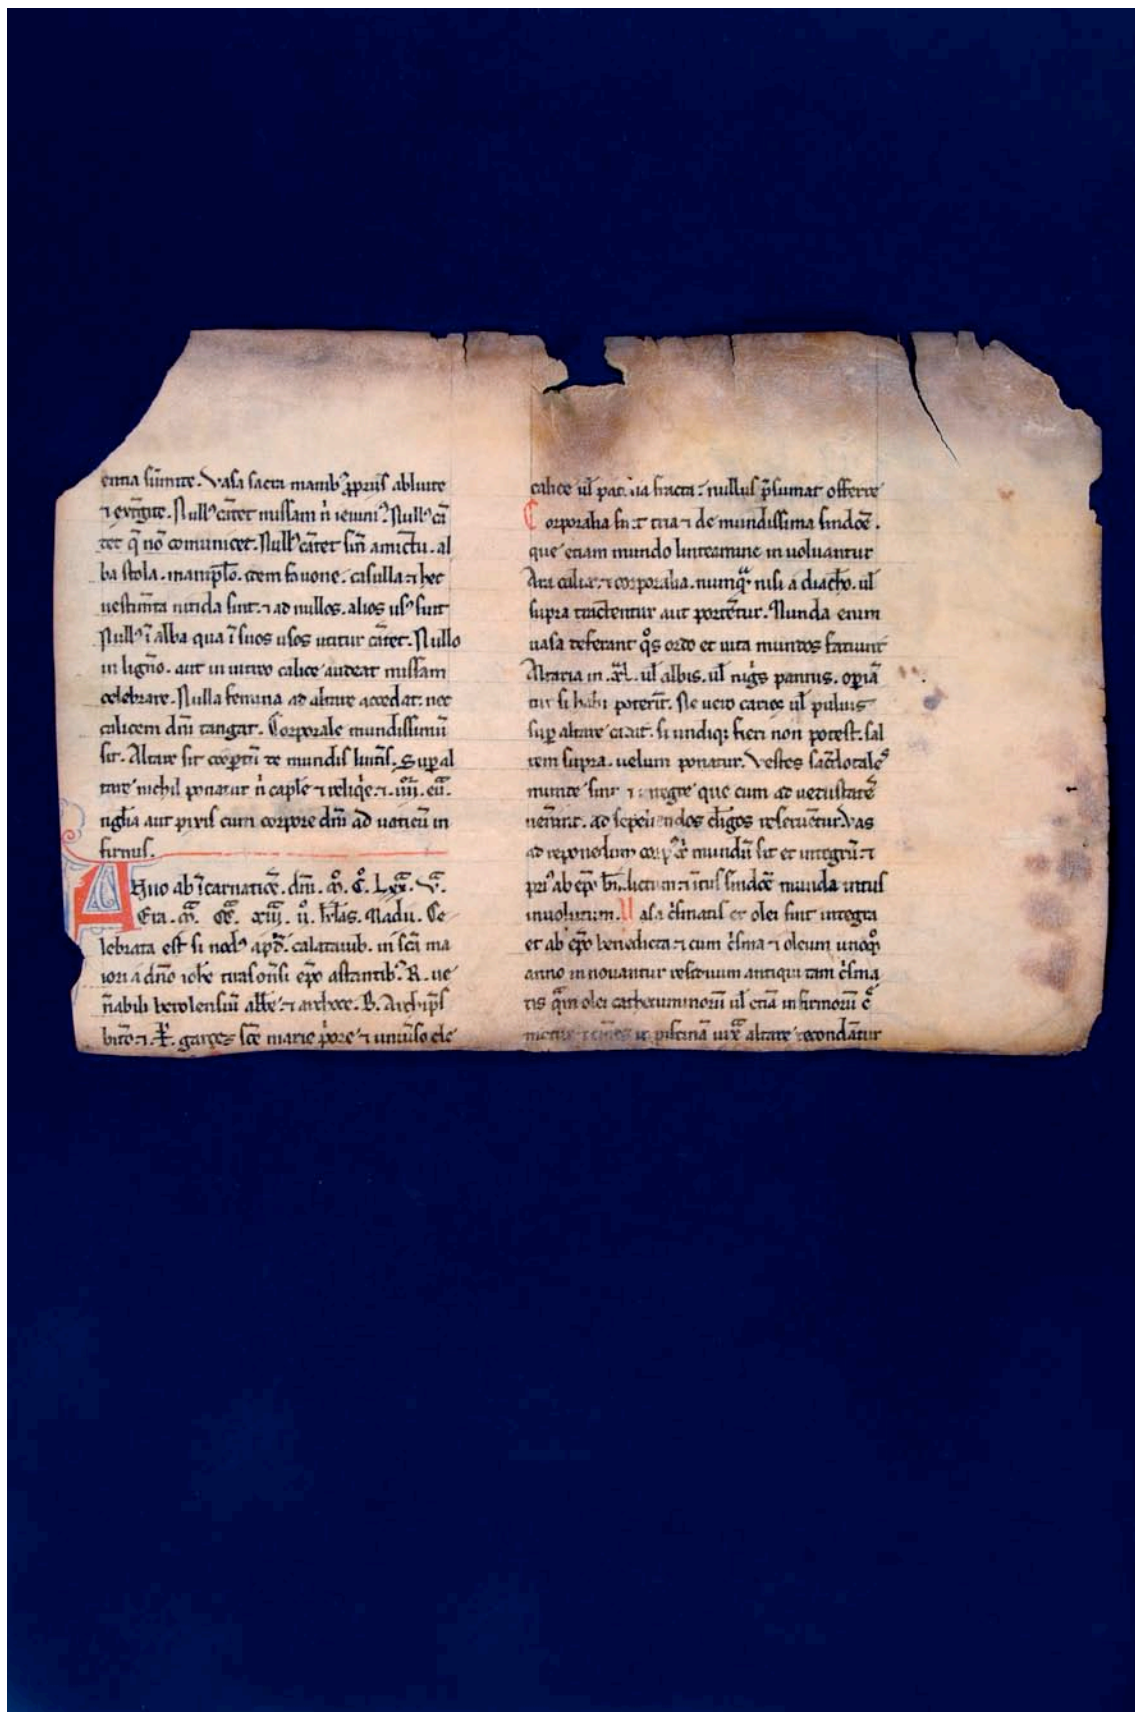 entia sūmite. Vasa sacra manibꝰ ꝓpriis abluite
⁊ extgite. Nullꝰ cātet missam ñ ieiunꝰ. Nullꝰ cā
tet q̄ nō comunicet. Nullꝰ cātet sin̄ amictu. al
ba stola. manip̄lo. item fauone. casulla. ⁊ hec
uestim̄ta nitida sint. ⁊ ad nullos. alios usꝰ sint
Nullꝰ ī alba qua ī suos usos utitur cātet. Nullo
in ligño. aut in uitreo calice audeat missam
celebrare. Nulla femina ad altare accedat. nec
calicem dn̄i tangat. Corporale mundissimū
sit. Altare sit coop̄tū de mundis lint̄is. Suꝑ al
tare nichil ponatur ñ caps̄e ⁊ reliq̄e. ⁊ .iiiior. eua
nḡlia aut pixis cum corpore dn̄i ad uaticū in
firmis.
Anno ab īcarnatiōe. dn̄i. mo. co. Lxxa. va.
Era. ma. cca. xiiia. uo. kl̄as. Madii. Ce
lebrata est sinodꝰ apđ. calataiub. in sc̄a ma
iori a dn̄o ioh̄e tirasoñsi ep̄o astantibꝰ. R. ue
ñabili berolensiū abb̄e. ⁊ archece. B. Archip̄s
bit̄o. ⁊ P̄. garçez sc̄e marie p̄ore ⁊ uniu̓so cle
calice ul̄ patena fracta. nullus p̄sumat offerre
Corporalia sint tria ⁊ de mundissima sindōe.
que etiam mundo linteamine inuoluantur
Ara calix. ⁊ corporalia. nunqᵃ. nisi a diach̄o. ul̄
supra tractentur aut portētur. Munda enim
uasa deferant qo̓s ordo et uita mundos faciunt
Altaria in .xl. ul̄ albis. ul̄ nig̓s pannis. oꝑiā
tur si hab̄i poterīt. Ne uero caries ul̄ puluis
suꝑ altare cadat. si undiqꝫ fieri non potest. sal
tem supra. uelum ponatur. Vestes sac̄dotaleˢ
munde sint ⁊ integre que cum ad uetustatē
uen̄int. ad sepeliendos cl̄igos reseruētur. Vas
ad reponedum corpꝰ xi mundū sit et integrū. ⁊
priꝰ ab ep̄o bn̄dictum ⁊ ītus sindōe munda intus
inuolutum. Vasa c̓smatis et olei sint integra
et ab ep̄o benedicta. ⁊ cum c̓sma ⁊ oleum unoqoqꝫ
anno innouantur residuum antiqui tam c̓sma
tis qᵃm olei catheruminorū ul̄ etiā infirmorū c̄
ur piscinā iuxᵃ altare recondātur